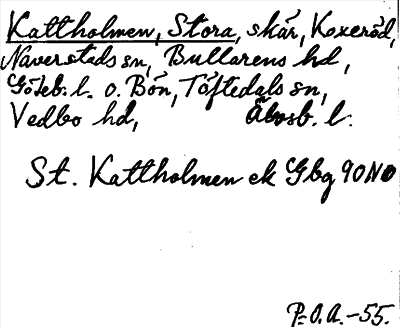 Kattholmen, Stora, skär, Koxeröd,
Naverstads sn, Bullarens hd,
Göteb. l. o. Bön, Töftedals sn,
Vedbo hd, Älvsb. l.
St. Kattholmen ek Gbg 90 NO
P.O.A. -55.